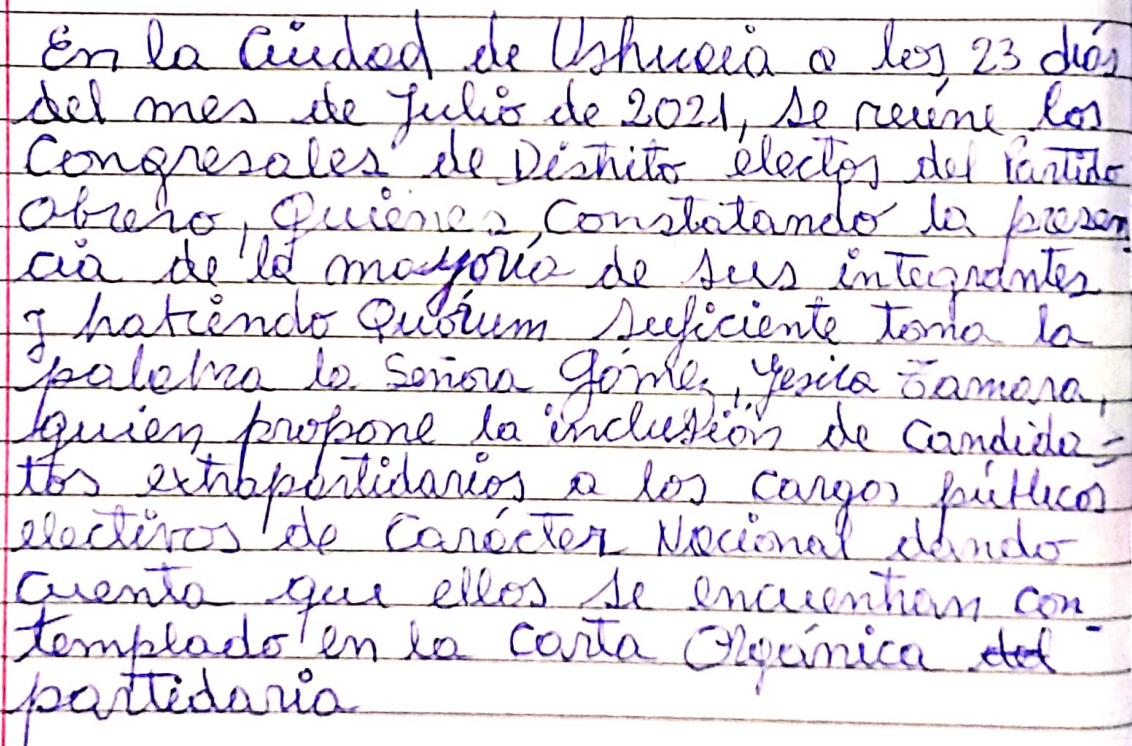 En la Ciudad de Ushuaia a los 23 días
del mes de Julio de 2021, se reúne los
Congresales de Distrito electos del Partido
Obrero, Quienes, Constatando la presen-
cia de la mayoría de sus integrantes
y habiendo Quórum suficiente toma la
palabra la Señora Gómez, Yesica Tamara,
quien propone la inclusión de Candida-
tos extrapartidarios a los cargos públicos
electivos de Carácter Nacional dando
cuenta que ellos se encuentran con-
templado en la Carta Orgánica del
partidaria